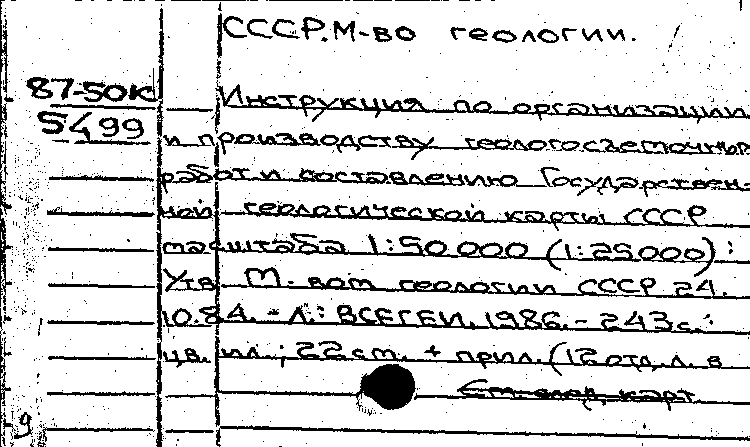 СССР. М-во геологии.
87-50К
5499
Инструкция по организации
и производству геологосъемочных
работ и составлению Государствен-
ной геологической карты СССР
масштаба 1:50 000 (1:25000) :
Утв. М-вом геологии СССР 24.
10.84. - Л.: ВСЕГЕИ, 1986. - 243 с.:
цв. ил.; 22 см. + прил. (12 отд. л. в
См. след. карт.
9